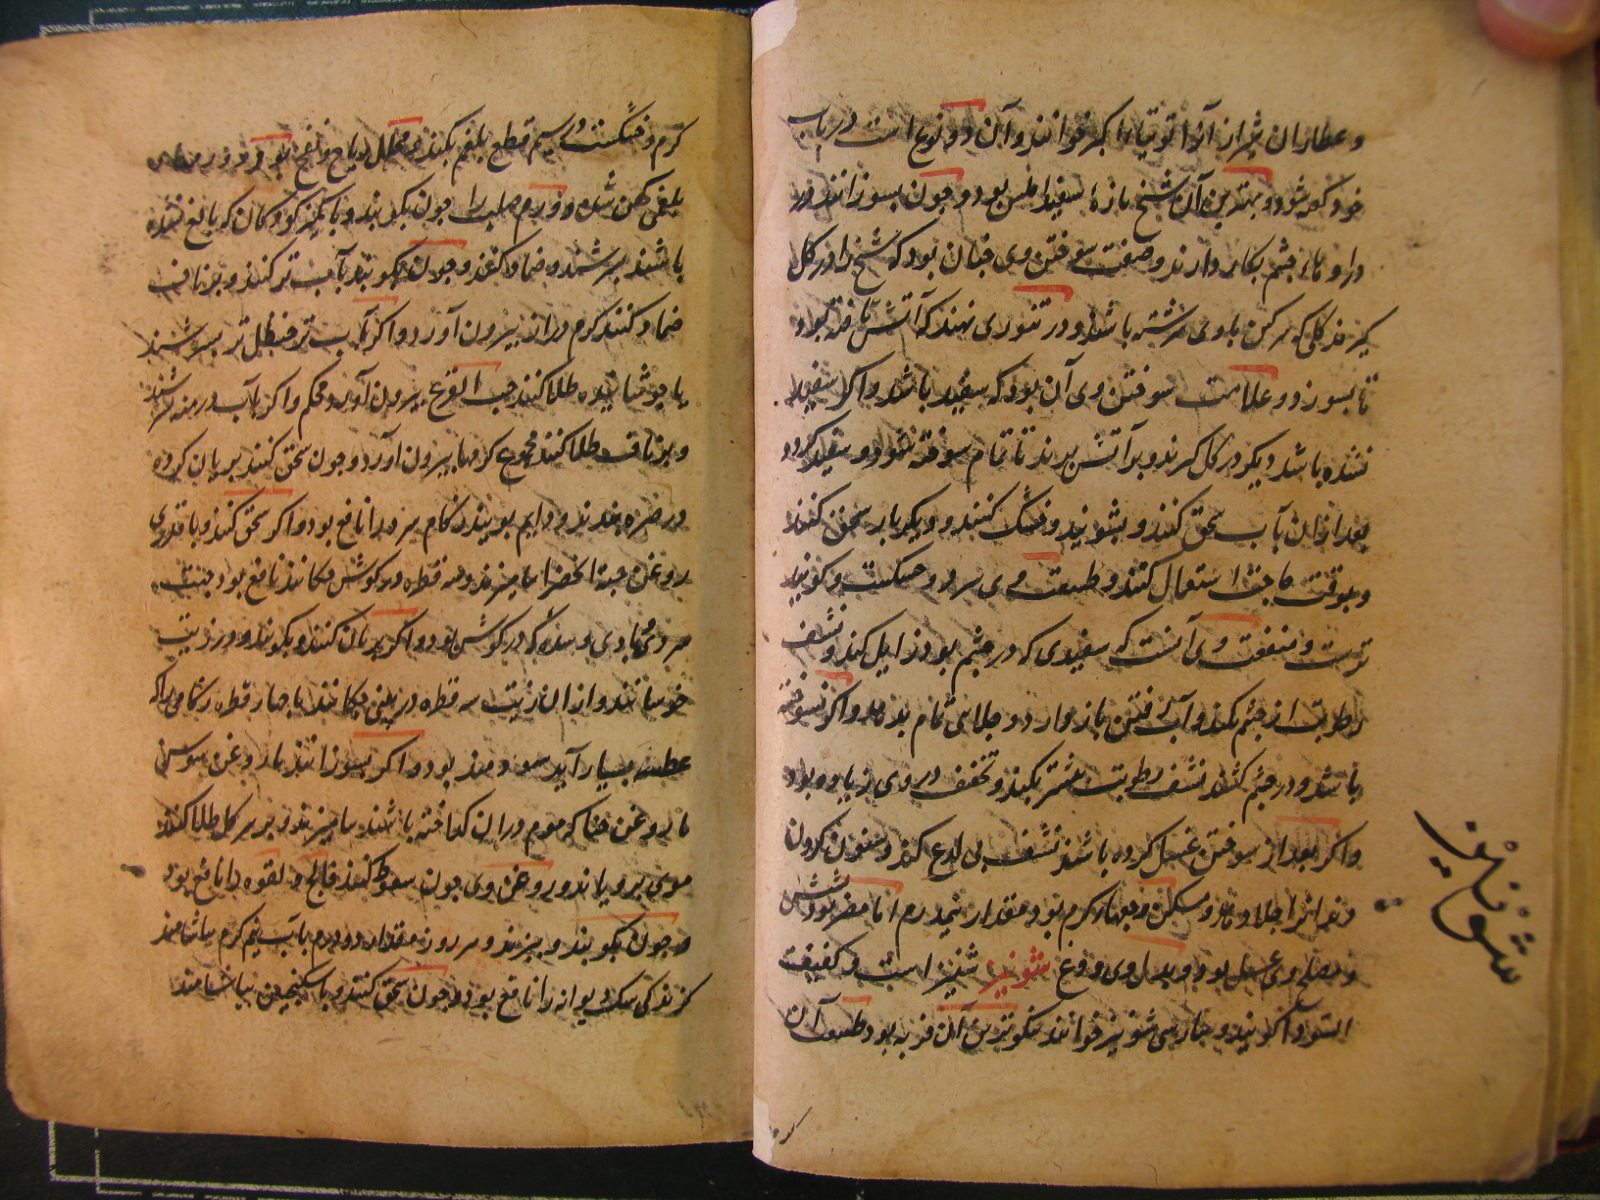 و عطاران شیراز آنرا توتیاء اکبر خوانند و آن دو نوع است در باب
خود گفته شود و بهترین آن شنج تازهٔ سفید املس بود و چون بسوزانند در
داروهاء چشم بکار دارند و صفت سوختن وی چنان بود که شنج را در گل
گیرند گلی که سرگین باوی سرشته باشد و در تنوری نهند که آتش تافته بود
تا بسوزد و علامت سوختن وی آن بود که سفید باشد و اگر سفید
نشده باشد دیگر در گل گیرند و بر آتش برند تا تمام سوخته شود و سفید گردد
بعد از آن بآب سحق کنند و بشویند و خشک کنند و دیگر بار سحق کنند
و بوقت حاجت استعمال کنند و طبیعت وی سرد و خشکست و گویند
ترست و منفعت وی آنست که سفیدی که در چشم بود زایل کند و نشف
رطوبت از چشم بکند و آب رفتن باز دارد و جلای تمام بدهد و اگر نسوخته
باشد و در چشم کشند نشف رطوبت بیشتر بکند و تجفف در وی زیاده بود
و اگر بعد از سوختن غسل کرده باشند نشف بی لدع کند و سنون کردن
دندانرا جلا دهد و مسکن وجعهاء گرم بود مقدار نیمدرم اما مضر بود بشش
و مصلح وی عسل بود و بدل وی ودع شونیز شنیز است و کفیفت
السودا گویند و بپارسی شونیز خوانند نیکوترین آن فربه بود طبیعت آن
شونیز
گرم و خشکست در سیم قطع بلغم بکند و محلل ریاح و نفخ بود و در ورمهاء
بلغمی کهن شده و ورم صلب را چون بکوبند و با کمیز کودکان که بالغ نشده
باشند بسرشند و ضماد کنند و چون بکوبند بآب تر کنند و بر ناف
ضماد کنند کرم دراز بیرون آورد و اگر بآب تر حنظل تر بسرشند
یا جوشانیده طلا کنند حب القرع بیرون آورد محکم و اگر بآب درمنه بسرشند
و بر ناف طلا کنند مجموع کرمها بیرون آورد و چون سحق کنند بریان کرده
در خرقه بندند و دایم بویند زکام سرد را نافع بود و اگر سحق کنند و با قدری
روغن حبة الخضرا بیامیزند و سه قطره در گوش چکانند نافع بود جهت
سردی و بادی و سده که در گوش بود و اگر بریان کنند و بکوبند و در زیت
خوسانند و از آن زیت سه قطره در بینی چکانند یا چهار قطره زکامی را که
عطسه بسیار آید سودمند بود و اگر بسوزانند با روغن سوسن
یا روغن حنا که موم در آن گداخته باشند بیامیزند و بر سر کل طلا کنند
موی برویاند و روغن وی چون سعوط کنند فالج و لقوه را نافع بود
و چون بکوبند و بپزند و هر روز مقدار دو درم بآب نیم گرم بیاشامند
گزندگی سگ دیوانه را نافع بود و چون سحق کنند و با سکنجبین بیاشامند